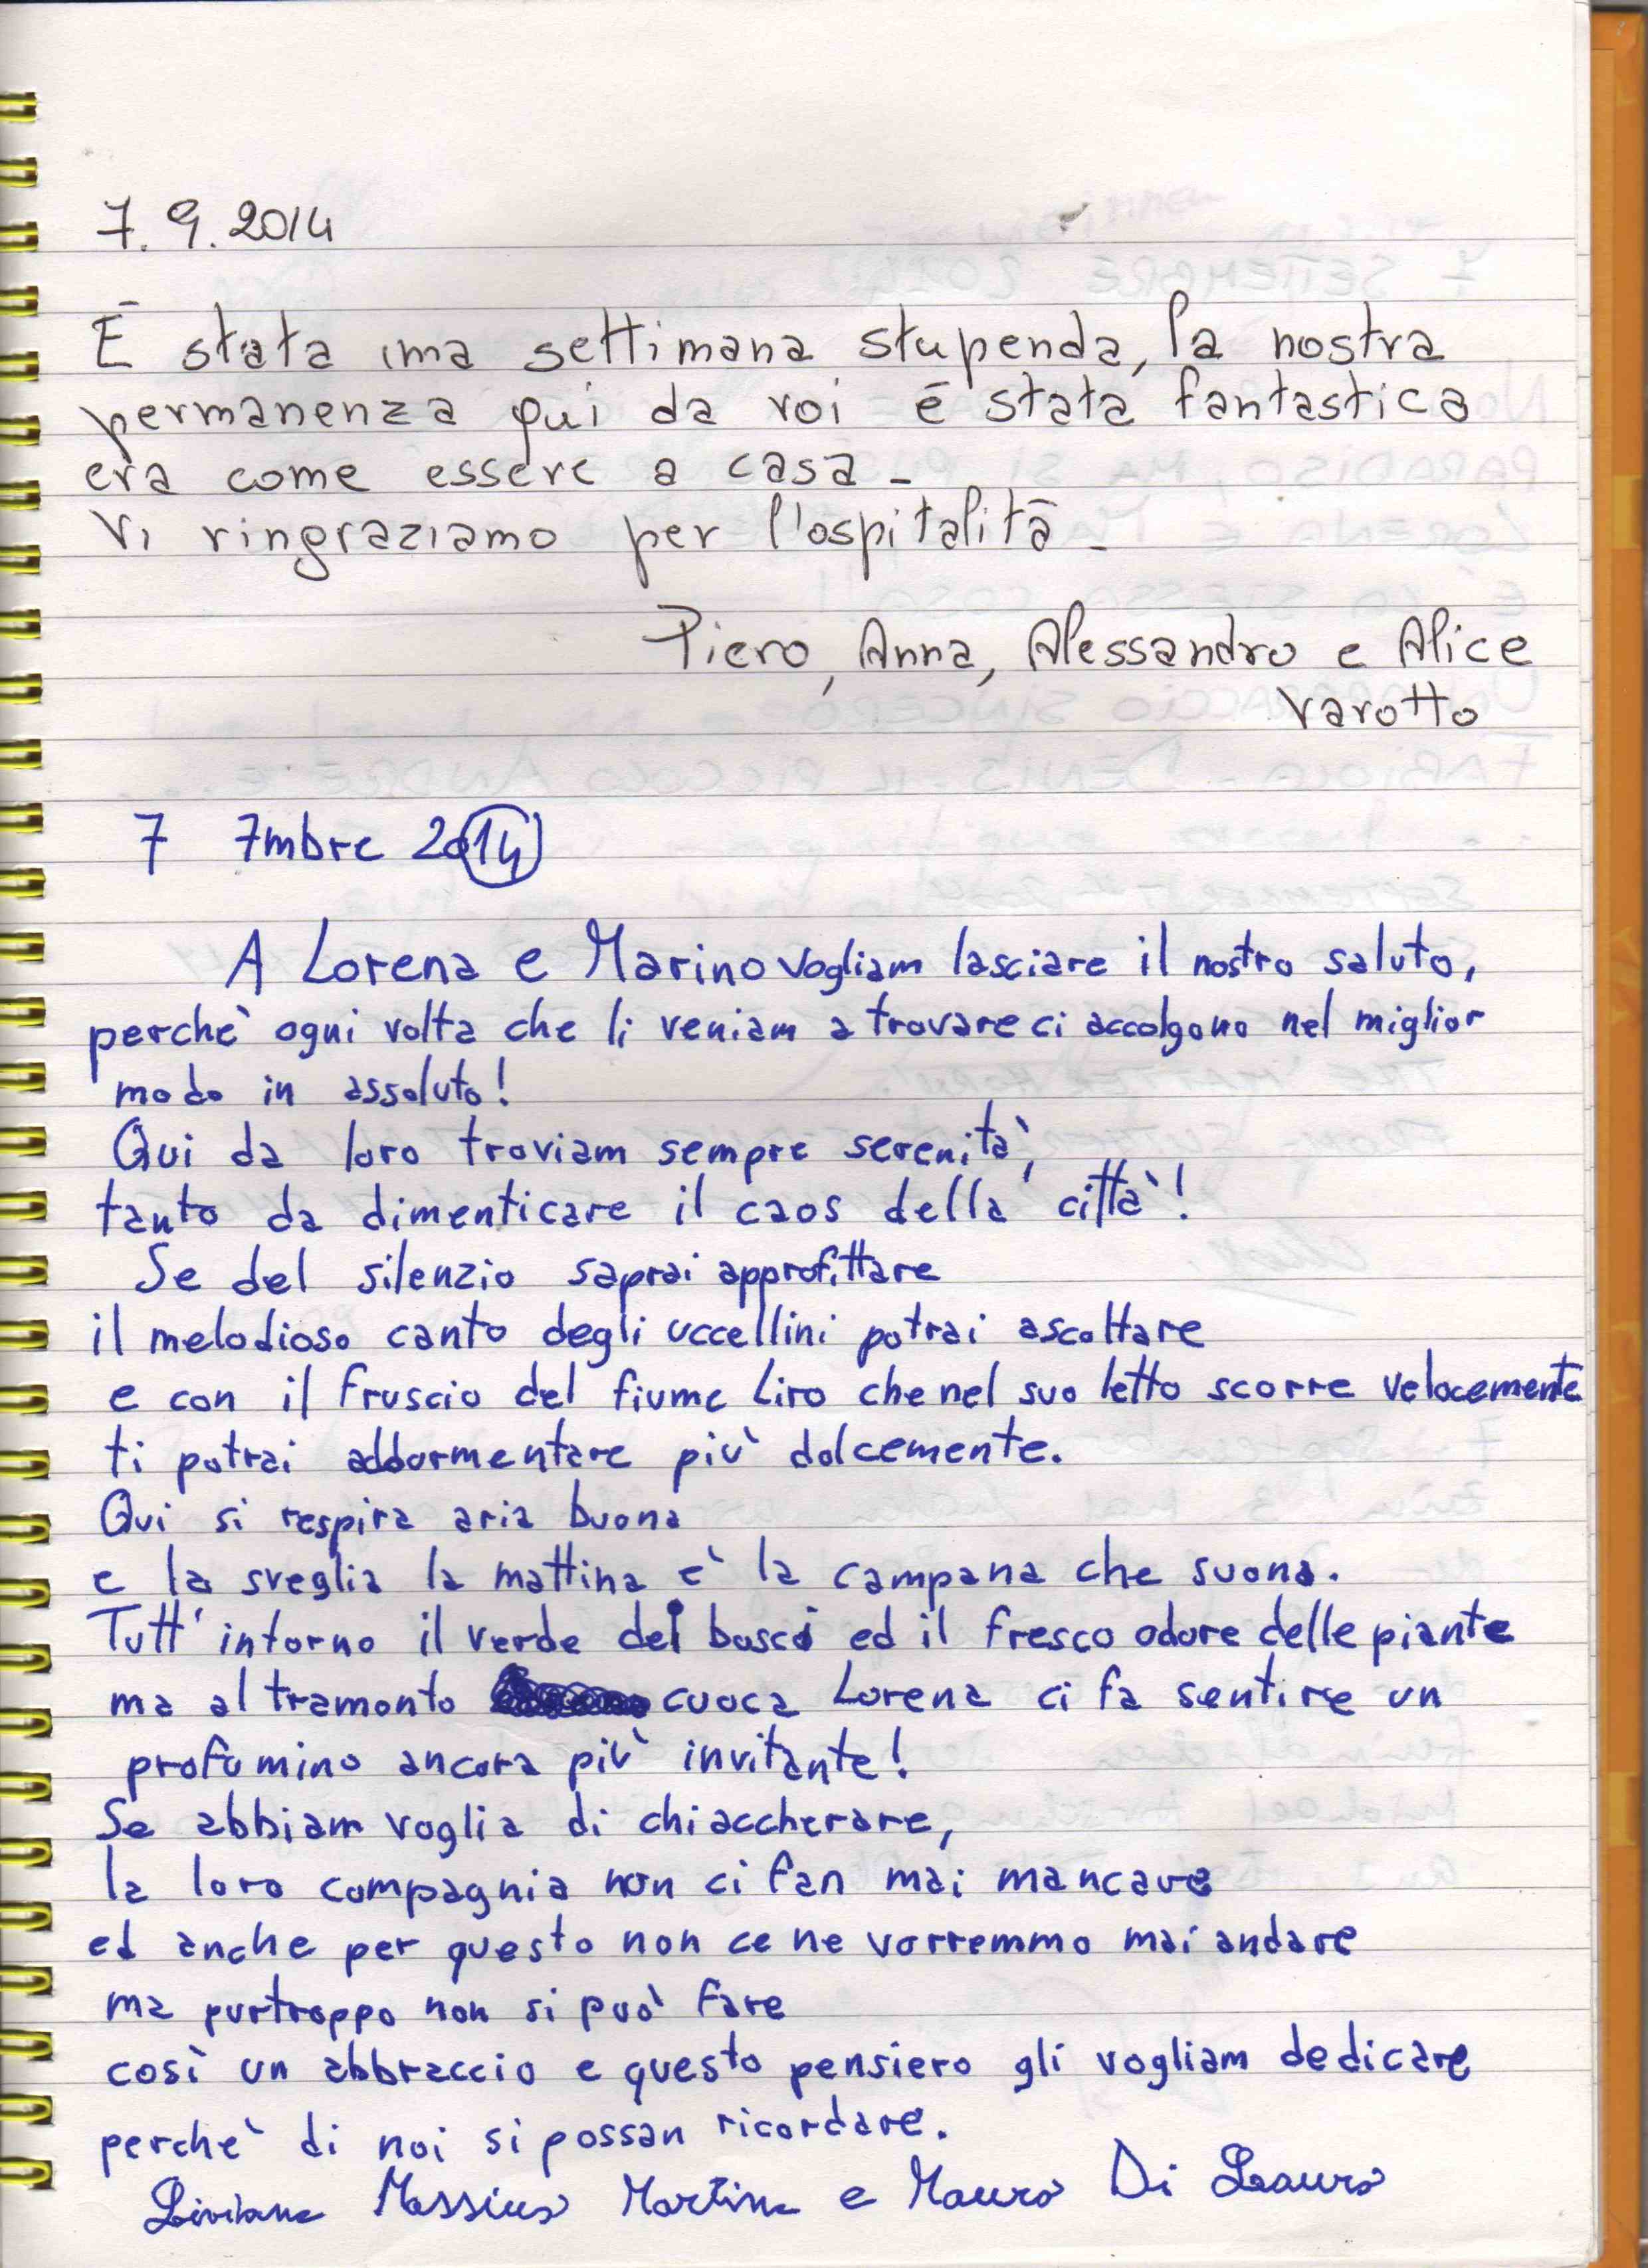 7.9.2014
È stata una settimana stupenda, la nostra
permanenza qui da voi è stata fantastica
era come essere a casa -
Vi ringraziamo per l'ospitalità -
Piero, Anna, Alessandro e Alice
Varotto
7 7mbre 2014
A Lorena e Marino vogliam lasciare il nostro saluto,
perchè ogni volta che li veniam a trovare ci accolgono nel miglior
modo in assoluto!
Qui da loro troviam sempre serenità,
tanto da dimenticare il caos della città!
Se del silenzio saprai approfittare
il melodioso canto degli uccellini potrai ascoltare
e con il fruscio del fiume Liro che nel suo letto scorre velocemente
ti potrai addormentare più dolcemente.
Qui si respira aria buona
e la sveglia la mattina è la campana che suona.
Tutt'intorno il verde dei bosci ed il fresco odore delle piante
ma al tramonto cuoca Lorena ci fa sentire un
profumino ancora più invitante!
Se abbiam voglia di chiaccherare,
la loro compagnia non ci fan mai mancare
ed anche per questo non ce ne vorremmo mai andare
ma purtroppo non si può fare
così un abbraccio e questo pensiero gli vogliam dedicare
perchè di noi si possan ricordare.
Liviana Massimo Martina e Mauro Di Lauro